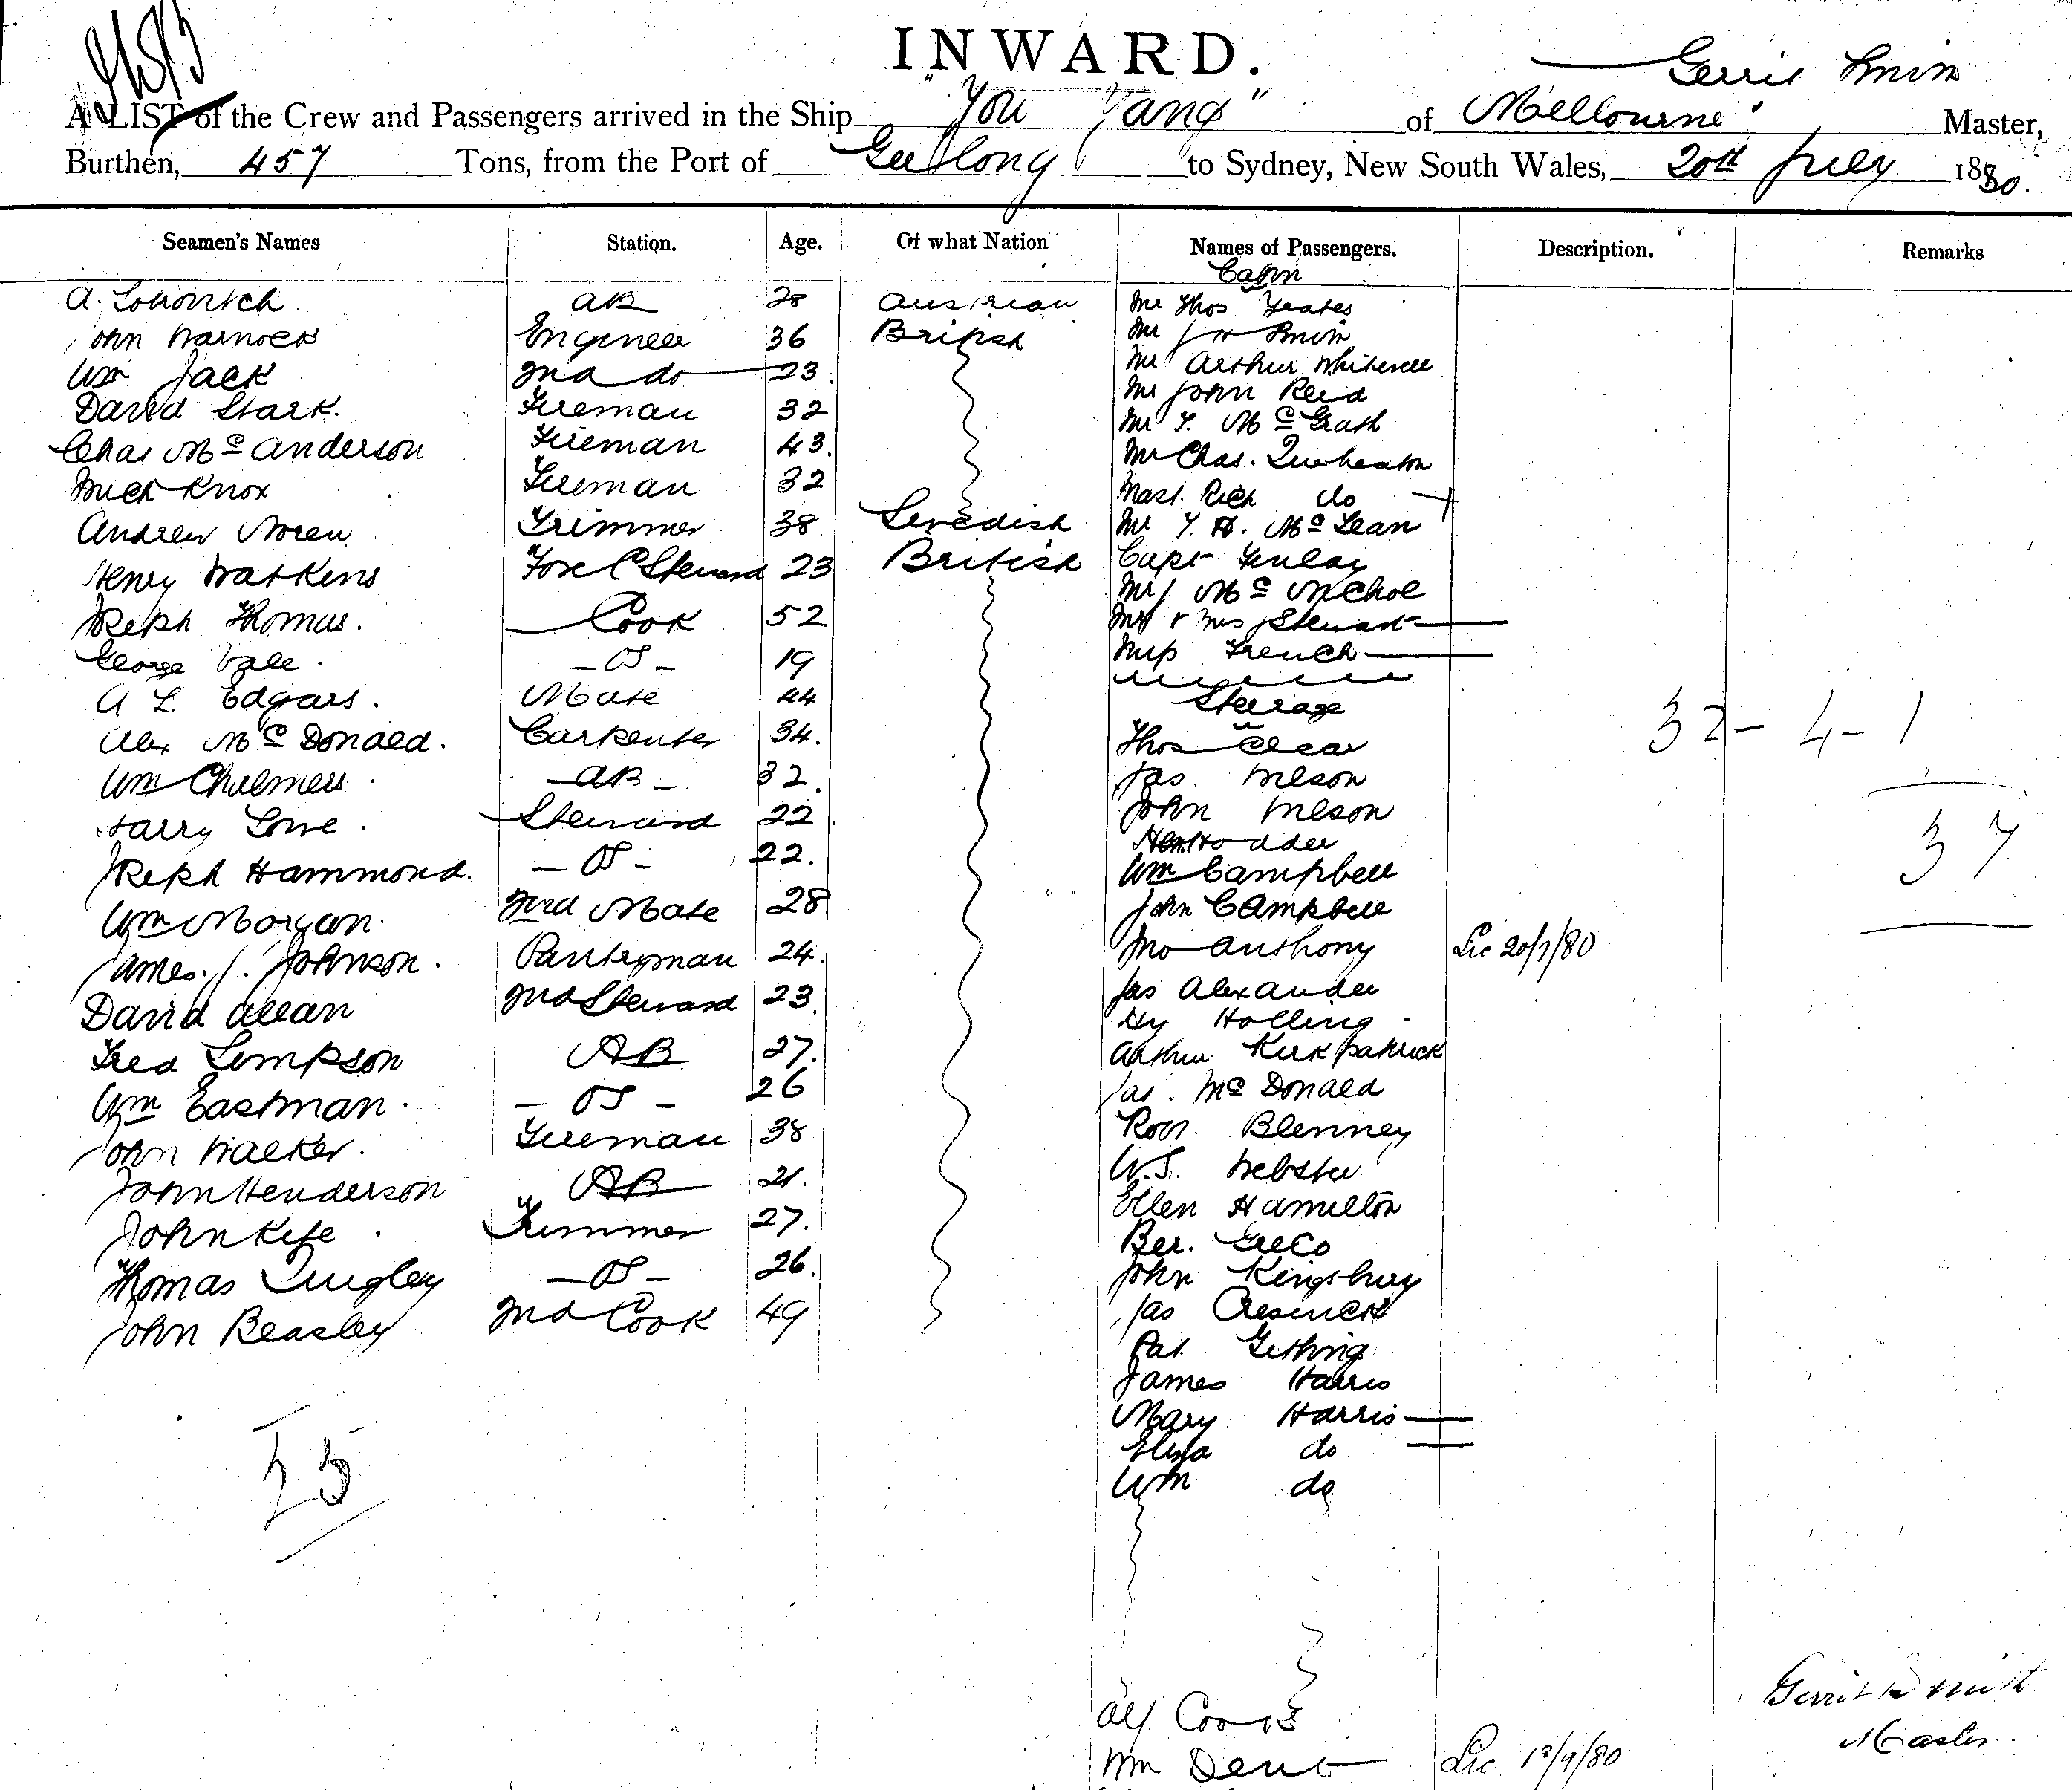 INWARD.
A LIST of the Crew and Passengers arrived in the Ship "You Yangs" of Melbourne Gerrit Smith Master,
Burthen, 457 Tons, from the Port of Geelong to Sydney, New South Wales, 20th July 1880.
Seamen's Names Station. Age. Of what Nation Names of Passengers. Description. Remarks
Cabin
A. AB 28 Austrian Mr Thos Yeates
John Warnock Engineer 36 British Mr
Wm Jack 2nd do 23 Mr Arthur
David Stark. Fireman 32 Mr John Reid
Chas McAnderson Fireman 43. Mr T. McGrath
Mich Knox Fireman 32 Mr Chas.
Mast. Rich do
Andrew Noren Trimmer 38 Swedish Mr T. H. McLean
Henry Watkins Fore C Steward 23 British Capt Finlay
Mr J McNichol
Joseph Thomas. Cook 52 Mr & Mrs Stewart
George Vale. - OS - 19 Miss French
A L. Edgars. Mate 44 Steerage
Alex McDonald. Carpenter 34. Thos Clear
Wm Chalmers - AB - 32. Jas Wilson
Harry Lowe. Steward 22. John Wilson
Hen Hodder
Joseph Hammond. - OS - 22. Wm Campbell
Wm Morgan. 2nd Mate 28 John Campbell
James. J. Johnson. Pantryman 24. Jno Anthony Lic 20/7/80
David Allan 2nd Steward 23. Jas Alexander
Hy Holling
Fred Simpson AB 27. Arthur Kirkpatrick
Wm Eastman. - OS - 26 Jas. McDonald
John Walker. Fireman 38 Robt. Blenney
W.S. Webster
John Henderson AB 21. Ellen Hamilton
John Kite. Trimmer 27. Ber. Greco
Thomas Quigley - OS - 26. John Kingsbury
John Beasley 2nd Cook 49 Jas
Pat Gething
James Harris
Mary Harris
Eliza do
Wm do
32 - 4 - 1
37
25
Alf Cooks
Wm Dent Lic. 13/9/80
Gerrit Smith
Master.